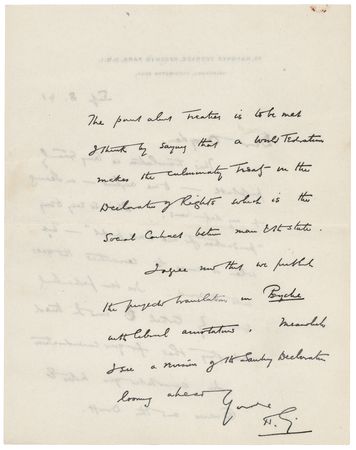 The point about Treaties is to be met
I think by saying that a World Federation
makes the culminating Treaty in the
Declaration of Rights which is the
Social Contract between man & the state.
I agree now that we publish
the projected translation in Psyche
with liberal annotations. Meanwhile
I see a revision of the Sankey Declaration
looming ahead
Yours
H.G.